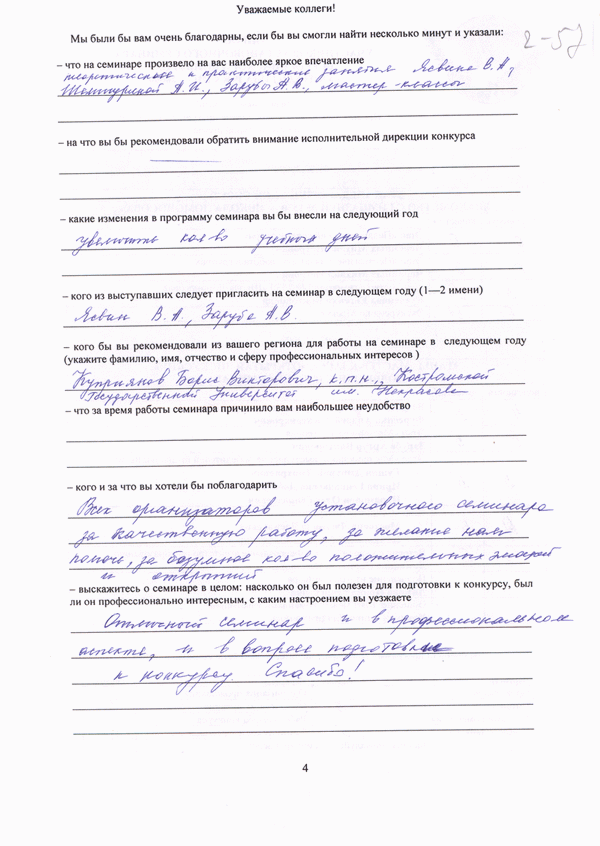 Уважаемые коллеги!
Мы были бы вам очень благодарны, если бы вы смогли найти несколько минут и указали:
2-57
– что на семинаре произвело на вас наиболее яркое впечатление
теоретические и практические занятия Ясвина В.А,
А.И., Зарубы А.В., мастер-классы
– на что вы бы рекомендовали обратить внимание исполнительной дирекции конкурса
– какие изменения в программу семинара вы бы внесли на следующий год
увеличить кол-во учебных дней
– кого из выступавших следует пригласить на семинар в следующем году (1—2 имени)
Ясвин В.А., Заруба А.В.
– кого бы вы рекомендовали из вашего региона для работы на семинаре в следующем году
(укажите фамилию, имя, отчество и сферу профессиональных интересов )
Куприянов Борис Викторович, к.п.н., Костромской
Государственный Университет им. Некрасова
– что за время работы семинара причинило вам наибольшее неудобство
– кого и за что вы хотели бы поблагодарить
Всех организаторов установочного семинара
за качественную работу, за желание нам
помочь, за безумное кол-во положительных эмоций
и открытий
– выскажитесь о семинаре в целом: насколько он был полезен для подготовки к конкурсу, был
ли он профессионально интересным, с каким настроением вы уезжаете
Отличный семинар и в профессиональном
аспекте, и в вопросе подготовки
к конкурсу Спасибо!
4